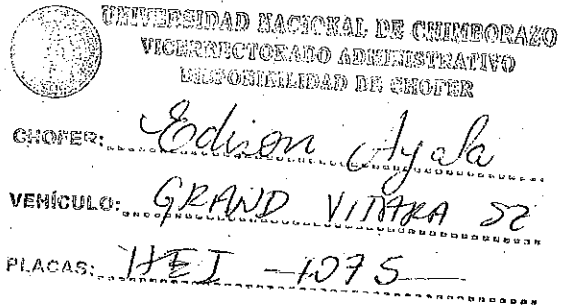 UNIVERSIDAD NACIONAL DE CHIMBORAZO
VICERRECTORADO ADMINISTRATIVO
DISPONIBILIDAD DE CHOFER
CHOFER: Edison Ayala
VEHÍCULO: GRAND VITARA SZ
PLACAS: HEI -1075